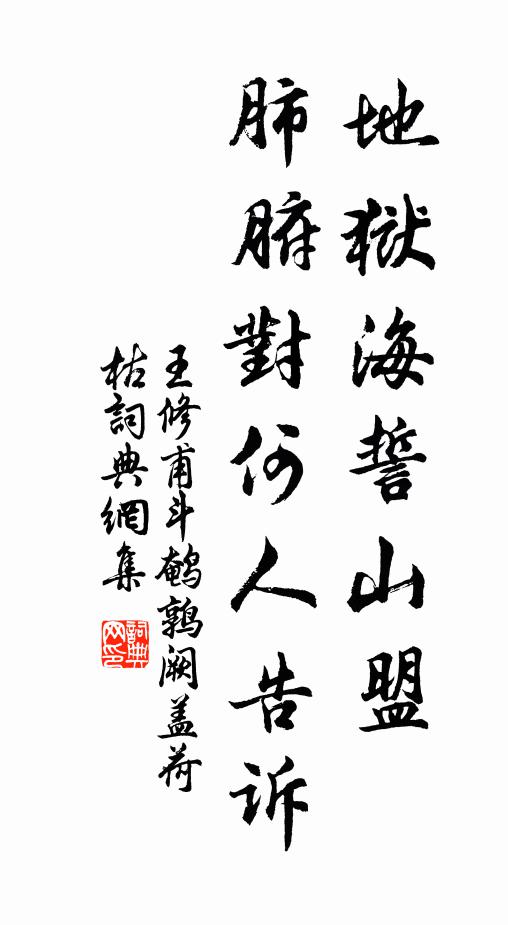 地獄海誓山盟
肺腑對何人告訴
王修甫斗鹌鹑阙盖荷
枯詞典網集
詞典网印